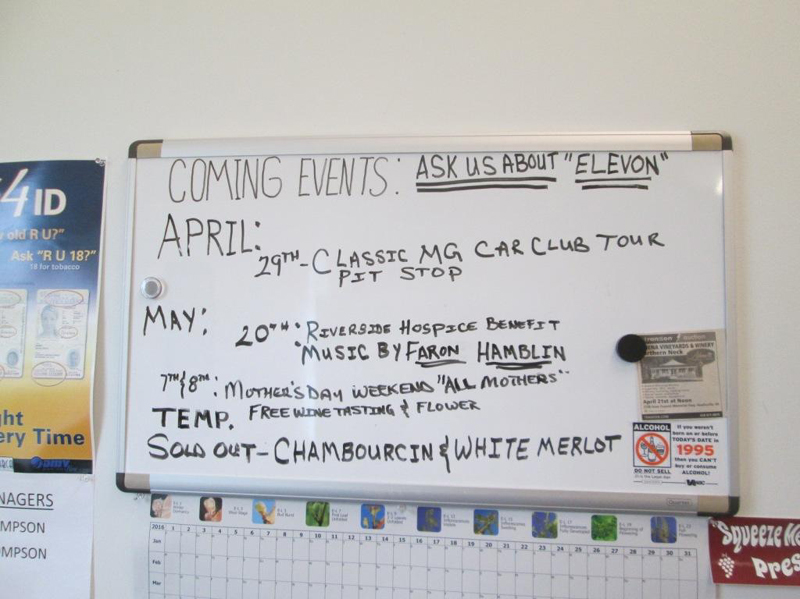 COMING EVENTS: ASK US ABOUT "ELEVON"
APRIL:
29TH-CLASSIC MG CAR CLUB TOUR
PIT STOP
MAY:
20TH: RIVERSIDE HOSPICE BENEFIT
"MUSIC BY FARON HAMBLIN
7TH & 8TH: MOTHER'S DAY WEEKEND "ALL MOTHERS"
FREE WINE TASTING & FLOWER
TEMP.
SOLD OUT- CHAMBOURCIN & WHITE MERLOT
4 ID
old R U?"
Ask "R U 18?"
18 for tobacco
ery Time
NAGERS
MPSON
OMPSON
VINEYARDS & WINERY
April 21st at Noon
ALCOHOL
DO NOT SELL
If you weren't
born on or before
TODAY'S DATE in
1995
then you CAN'T
buy or consume
ALCOHOL!
ABC
1 2 3 4 5 6 7 8 9 10 11 12 13 14 15 16 17 18 19 20 21 22 23 24 25 26 27 28 29 30 31
Jan
Feb
Mar
Squeeze Me
Pres